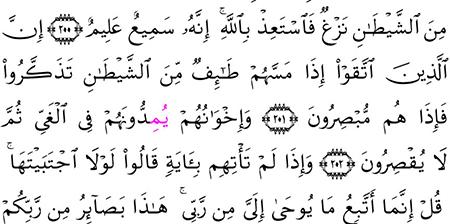 مِنَ ٱلشَّيْطَٰنِ نَزْغٌ فَٱسْتَعِذْ بِٱللَّهِ ۚ إِنَّهُۥ سَمِيعٌ عَلِيمٌ ﴿٢٠٠﴾ إِنَّ
ٱلَّذِينَ ٱتَّقَوْا۟ إِذَا مَسَّهُمْ طَٰٓئِفٌ مِّنَ ٱلشَّيْطَٰنِ تَذَكَّرُوا۟
فَإِذَا هُم مُّبْصِرُونَ ﴿٢٠١﴾ وَإِخْوَٰنُهُمْ يُمِدُّونَهُمْ فِى ٱلْغَىِّ ثُمَّ
لَا يُقْصِرُونَ ﴿٢٠٢﴾ وَإِذَا لَمْ تَأْتِهِم بِـَٔايَةٍ قَالُوا۟ لَوْلَا ٱجْتَبَيْتَهَا ۚ
قُلْ إِنَّمَآ أَتَّبِعُ مَا يُوحَىٰٓ إِلَىَّ مِن رَّبِّى ۚ هَٰذَا بَصَآئِرُ مِن رَّبِّكُمْ